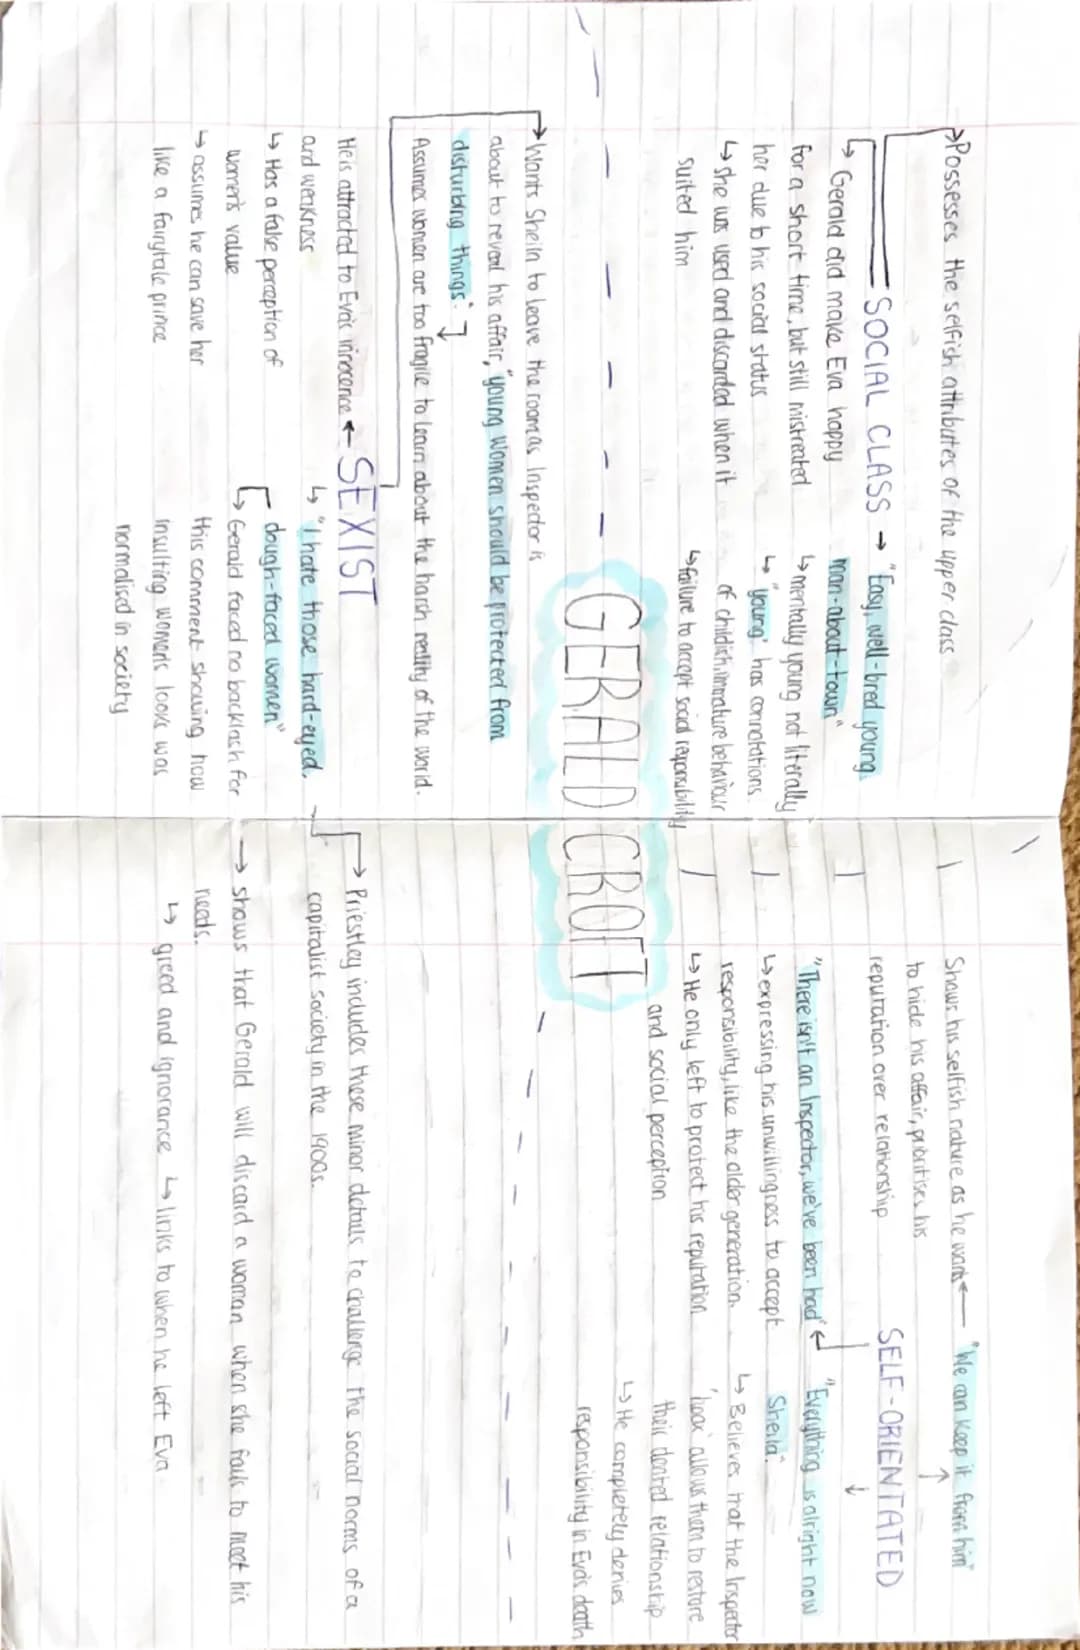 →Possesses the selfish attributes of the upper class
SOCIAL CLASS → "Easy, well-bred young
man-about-town"
↳ Gerald did make Eva happy
for a short time, but still mistreated
her due to his social status
↳ She was used and discarded when it
suited him
↳ mentally young not literally
↳ 'young' has connotations
of childish, immature behaviour
↳ failure to accept social responsibility
Shows his selfish nature as he wants ← "We can keep it from him"
to hide his affair, prioritises his
reputation over relationship
SELF-ORIENTATED
"There isn't an Inspector, we've been had"
↳ expressing his unwillingness to accept
responsibility, like the older generation.
↳ He only left to protect his reputation
and social perception
"Everything is alright now
Sheila."
↳ Believes that the Inspector
'hoax' allows them to restore
their dented relationship
↳ He completely denies
responsibility in Eva's death
GERALD CROFT
→ Wants Sheila to leave the room as Inspector is
about to reveal his affair, "young women should be protected from
disturbing things".
Assumes women are too fragile to learn about the harsh reality of the world.
He is attracted to Eva's innocence ← SEXIST
and weakness
↳ Has a false perception of
women's value
↳ assumes he can save her
like a fairytale prince
↳ "I hate those hard-eyed,
dough-faced women"
↳ Gerald faced no backlash for
this comment showing how
insulting women's looks was
normalised in society
→ Priestley includes these minor details to challenge the social norms of a
capitalist society in the 1900s.
→ shows that Gerald will discard a woman when she fails to meet his
needs.
↳ greed and ignorance ↳ links to when he left Eva